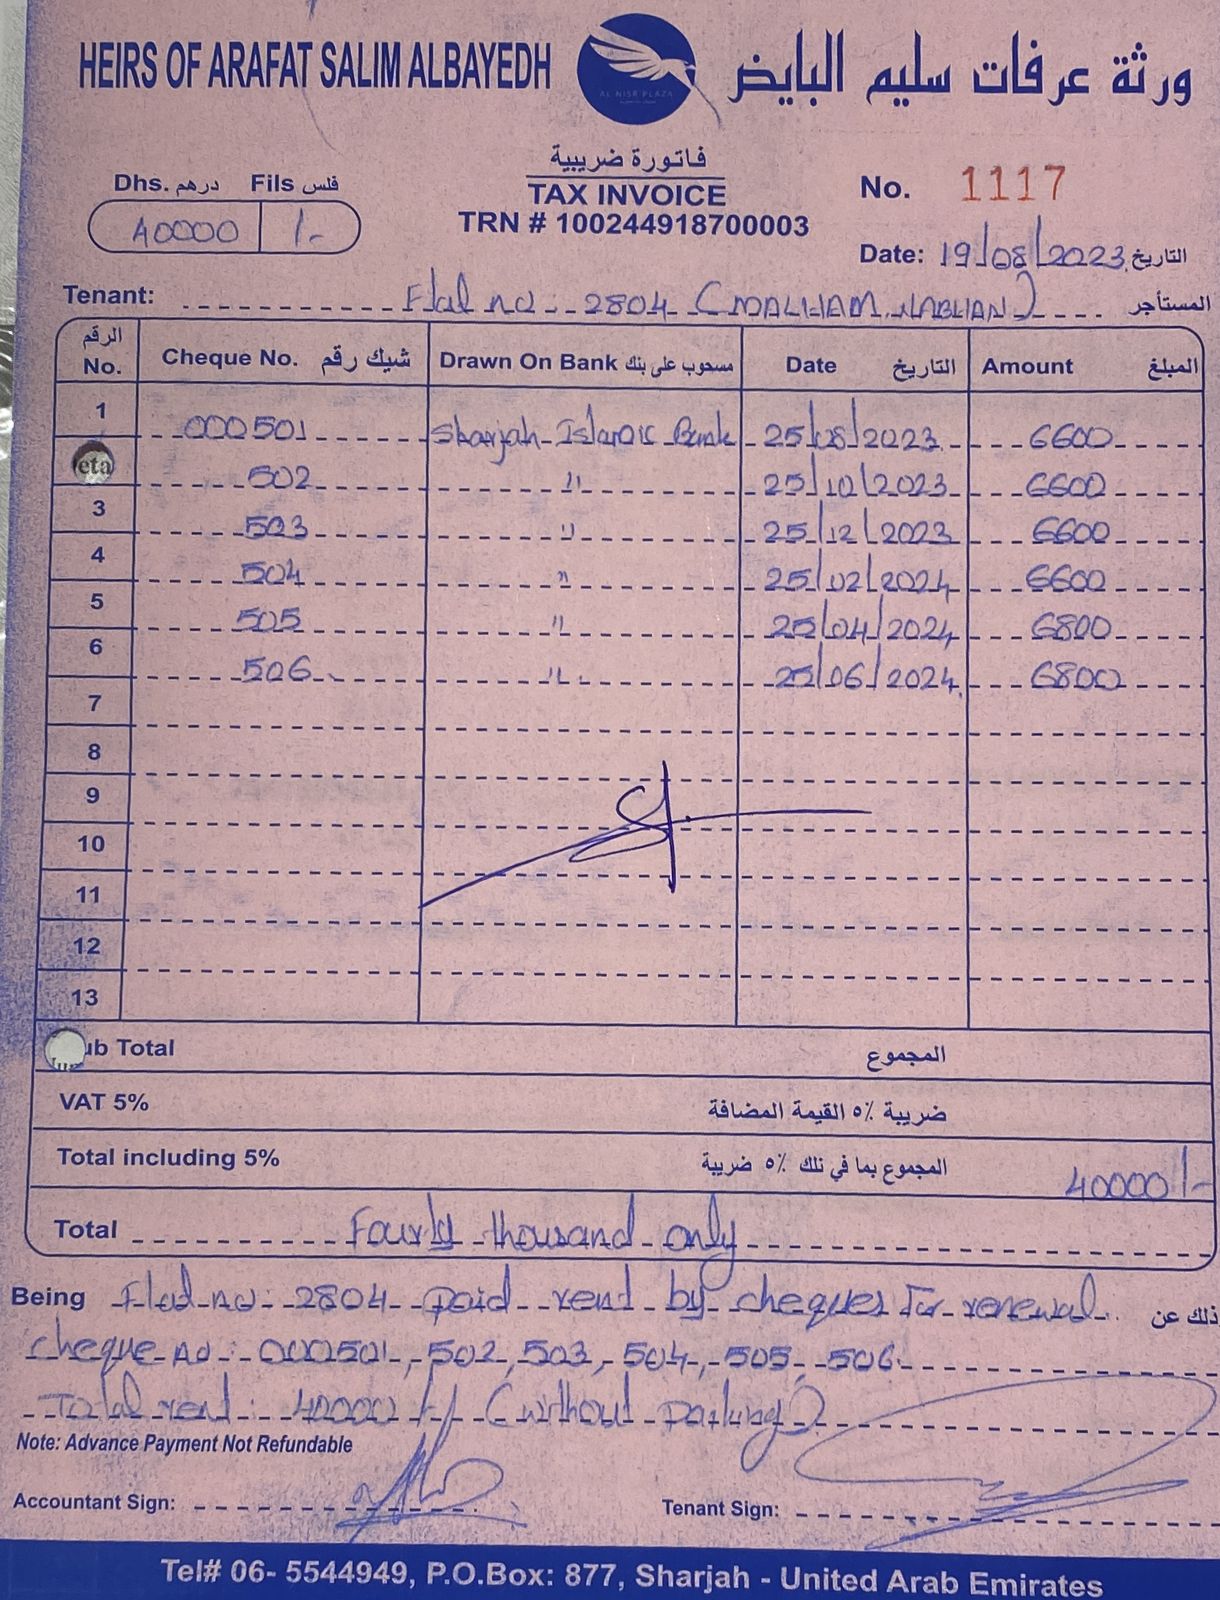 HEIRS OF ARAFAT SALIM ALBAYEDH
AL NISR PLAZA
ورثة عرفات سليم البايض
فاتورة ضريبية
TAX INVOICE
TRN # 100244918700003
Dhs. درهم Fils فلس
40000 /-
No. 1117
Date: 19/08/2023 التاريخ
Tenant: Flat no 2804 (MALHAM NABHAN) المستأجر
الرقم No. Cheque No. شيك رقم Drawn On Bank مسحوب على بنك Date التاريخ Amount المبلغ
1 000501 Sharjah Islamic Bank 25/08/2023 6600
eta 502 " 25/10/2023 6600
3 503 " 25/12/2023 6600
4 504 " 25/02/2024 6600
5 505 " 25/04/2024 6800
6 506 " 25/06/2024 6800
7
8
9
10
11
12
13
ub Total المجموع
VAT 5% ضريبة ٥٪ القيمة المضافة
Total including 5% المجموع بما في ذلك ٥٪ ضريبة 40000/-
Total Fourty thousand only
Being Flat no: 2804 paid rent by cheques for renewal. وذلك عن
cheque no: 000501, 502, 503, 504, 505, 506.
Total rent: 40000/-/ (without parking)
Note: Advance Payment Not Refundable
Accountant Sign:
Tenant Sign:
Tel# 06- 5544949, P.O.Box: 877, Sharjah - United Arab Emirates